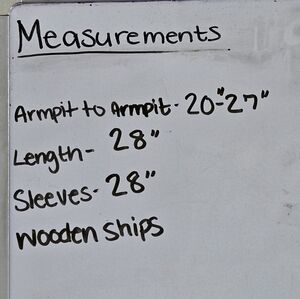 Measurements
Armpit to Armpit - 20"-27"
Length - 28"
Sleeves - 28"
Wooden Ships